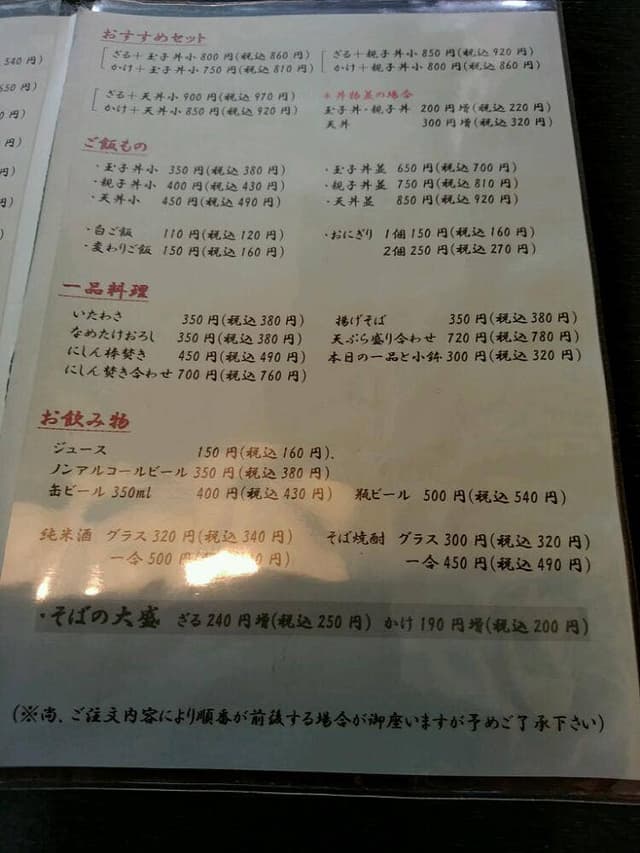 540円)
650円)
円)
円)
円)
円)
おすすめセット
ざる+玉子丼小 800円(税込860円)
かけ+玉子丼小 750円(税込810円)
ざる+親子丼小 850円(税込920円)
かけ+親子丼小 800円(税込860円)
ざる+天丼小 900円(税込970円)
かけ+天丼小 850円(税込920円)
*丼物並の場合
玉子丼・親子丼 200円増(税込220円)
天丼 300円増(税込320円)
ご飯もの
・玉子丼小 350円(税込380円)
・親子丼小 400円(税込430円)
・天丼小 450円(税込490円)
・玉子丼並 650円(税込700円)
・親子丼並 750円(税込810円)
・天丼並 850円(税込920円)
・白ご飯 110円(税込120円)
・変わりご飯 150円(税込160円)
・おにぎり 1個150円(税込160円)
2個250円(税込270円)
一品料理
いたわさ 350円(税込380円)
なめたけおろし 350円(税込380円)
にしん棒焚き 450円(税込490円)
にしん焚き合わせ 700円(税込760円)
揚げそば 350円(税込380円)
天ぷら盛り合わせ 720円(税込780円)
本日の一品と小鉢 300円(税込320円)
お飲み物
ジュース 150円(税込160円).
ノンアルコールビール 350円(税込380円)
缶ビール 350ml 400円(税込430円)
瓶ビール 500円(税込540円)
純米酒 グラス 320円(税込340円)
一合 500円(税込 0円)
そば焼酎 グラス 300円(税込320円)
一合 450円(税込490円)
・そばの大盛 ざる 240円増(税込250円) かけ 190円増(税込200円)
(※尚、ご注文内容により順番が前後する場合が御座いますが予めご了承下さい)